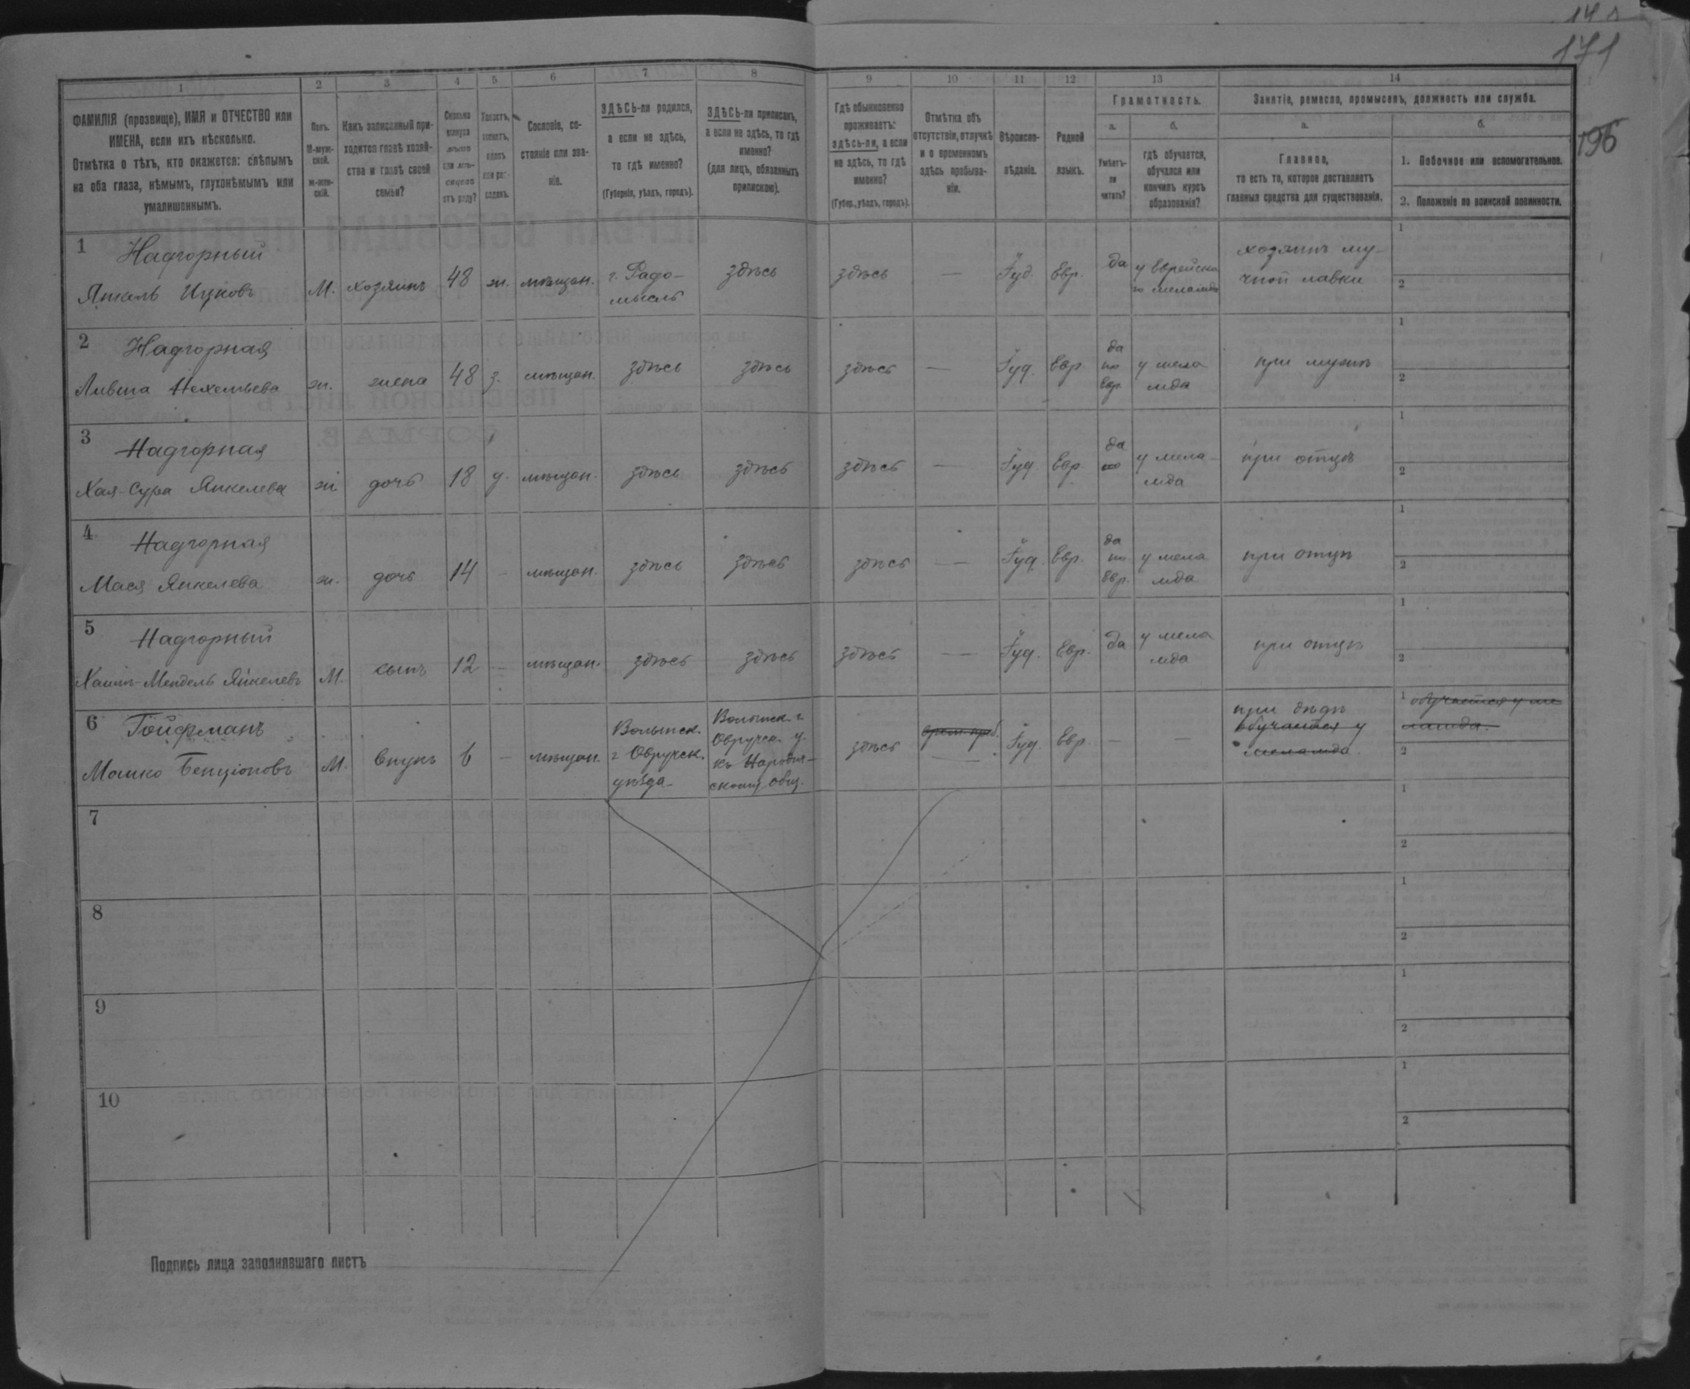 171
196
1
2
3
4
5
6
7
8
9
10
11
12
13
14
ФАМИЛІЯ (прозвище), ИМЯ и ОТЧЕСТВО или
ИМЕНА, если ихъ нѣсколько.
Отмѣтка о тѣхъ, кто окажется: слѣпымъ
на оба глаза, нѣмымъ, глухонѣмымъ или
умалишеннымъ.
Полъ.
М-муж-
ской.
ж-жен-
скій.
Какъ записанный при-
ходится главѣ хозяй-
ства и главѣ своей
семьи?
Сословіе, со-
стояніе или зва-
ніе.
ЗДѢСЬ-ли родился,
а если не здѣсь,
то гдѣ именно?
(Губернія, уѣздъ, городъ).
ЗДѢСЬ-ли приписанъ,
а если не здѣсь, то гдѣ
именно?
(для лицъ, обязанныхъ
припискою).
Гдѣ обыкновенно
проживаетъ:
здѣсь-ли, а если
не здѣсь, то гдѣ
именно?
(Губер., уѣздъ, городъ).
Отмѣтка объ
отсутствіи, отлучкѣ
и о временномъ
здѣсь пребыва-
ніи.
Вѣроиспо-
вѣданіе.
Родной
языкъ.
Грамотность.
а.
Умѣетъ-
ли
читать?
б.
гдѣ обучается,
обучался или
кончилъ курсъ
образованія?
Занятіе, ремесло, промыселъ, должность или служба.
а.
Главное,
то есть то, которое доставляетъ
главныя средства для существованія.
б.
1. Побочное или вспомогательное.
2. Положеніе по воинской повинности.
1
Надгорный
Янкель Ицковъ
М.
хозяинъ
48
ж.
мѣщан.
г. Радо-
мысль
здѣсь
здѣсь
—
Іуд.
Евр.
да
у еврейска
го меламда
хозяинъ му-
чной лавки
1
2
2
Надгорная
Ливша Нехемьева
ж.
жена
48
з.
мѣщан.
здѣсь
здѣсь
здѣсь
—
Іуд.
Евр.
да
по
евр.
у мела
мда
при мужѣ
1
2
3
Надгорная
Хая-Сура Янкелева
ж
дочь
18
д.
мѣщан.
здѣсь
здѣсь
здѣсь
—
Іуд.
Евр.
да
у мела-
мда
при отцѣ
1
2
4
Надгорная
Мася Янкелева
ж.
дочь
14
—
мѣщан.
здѣсь
здѣсь
здѣсь
—
Іуд.
Евр.
да
по
евр.
у мела
мда
при отцѣ
1
2
5
Надгорный
Хаимъ-Мендель Янкелевъ
М.
сынъ
12
—
мѣщан.
здѣсь
здѣсь
здѣсь
—
Іуд.
Евр.
да
у мела
мда
при отцѣ
1
2
6
Гойфманъ
Мошко Бенціоновъ
М.
внукъ
6
—
мѣщан.
Волынск.
г. Овручск.
уѣзда
Волынск. г.
Овручск. у.
къ Наровля-
скому общ.
здѣсь
—
Іуд.
Евр.
—
—
при дѣдѣ
обучается у
меламда
1 обучается у ме
ламда.
2
7
1
2
8
1
2
9
1
2
10
1
2
Подпись лица заполнявшаго листъ